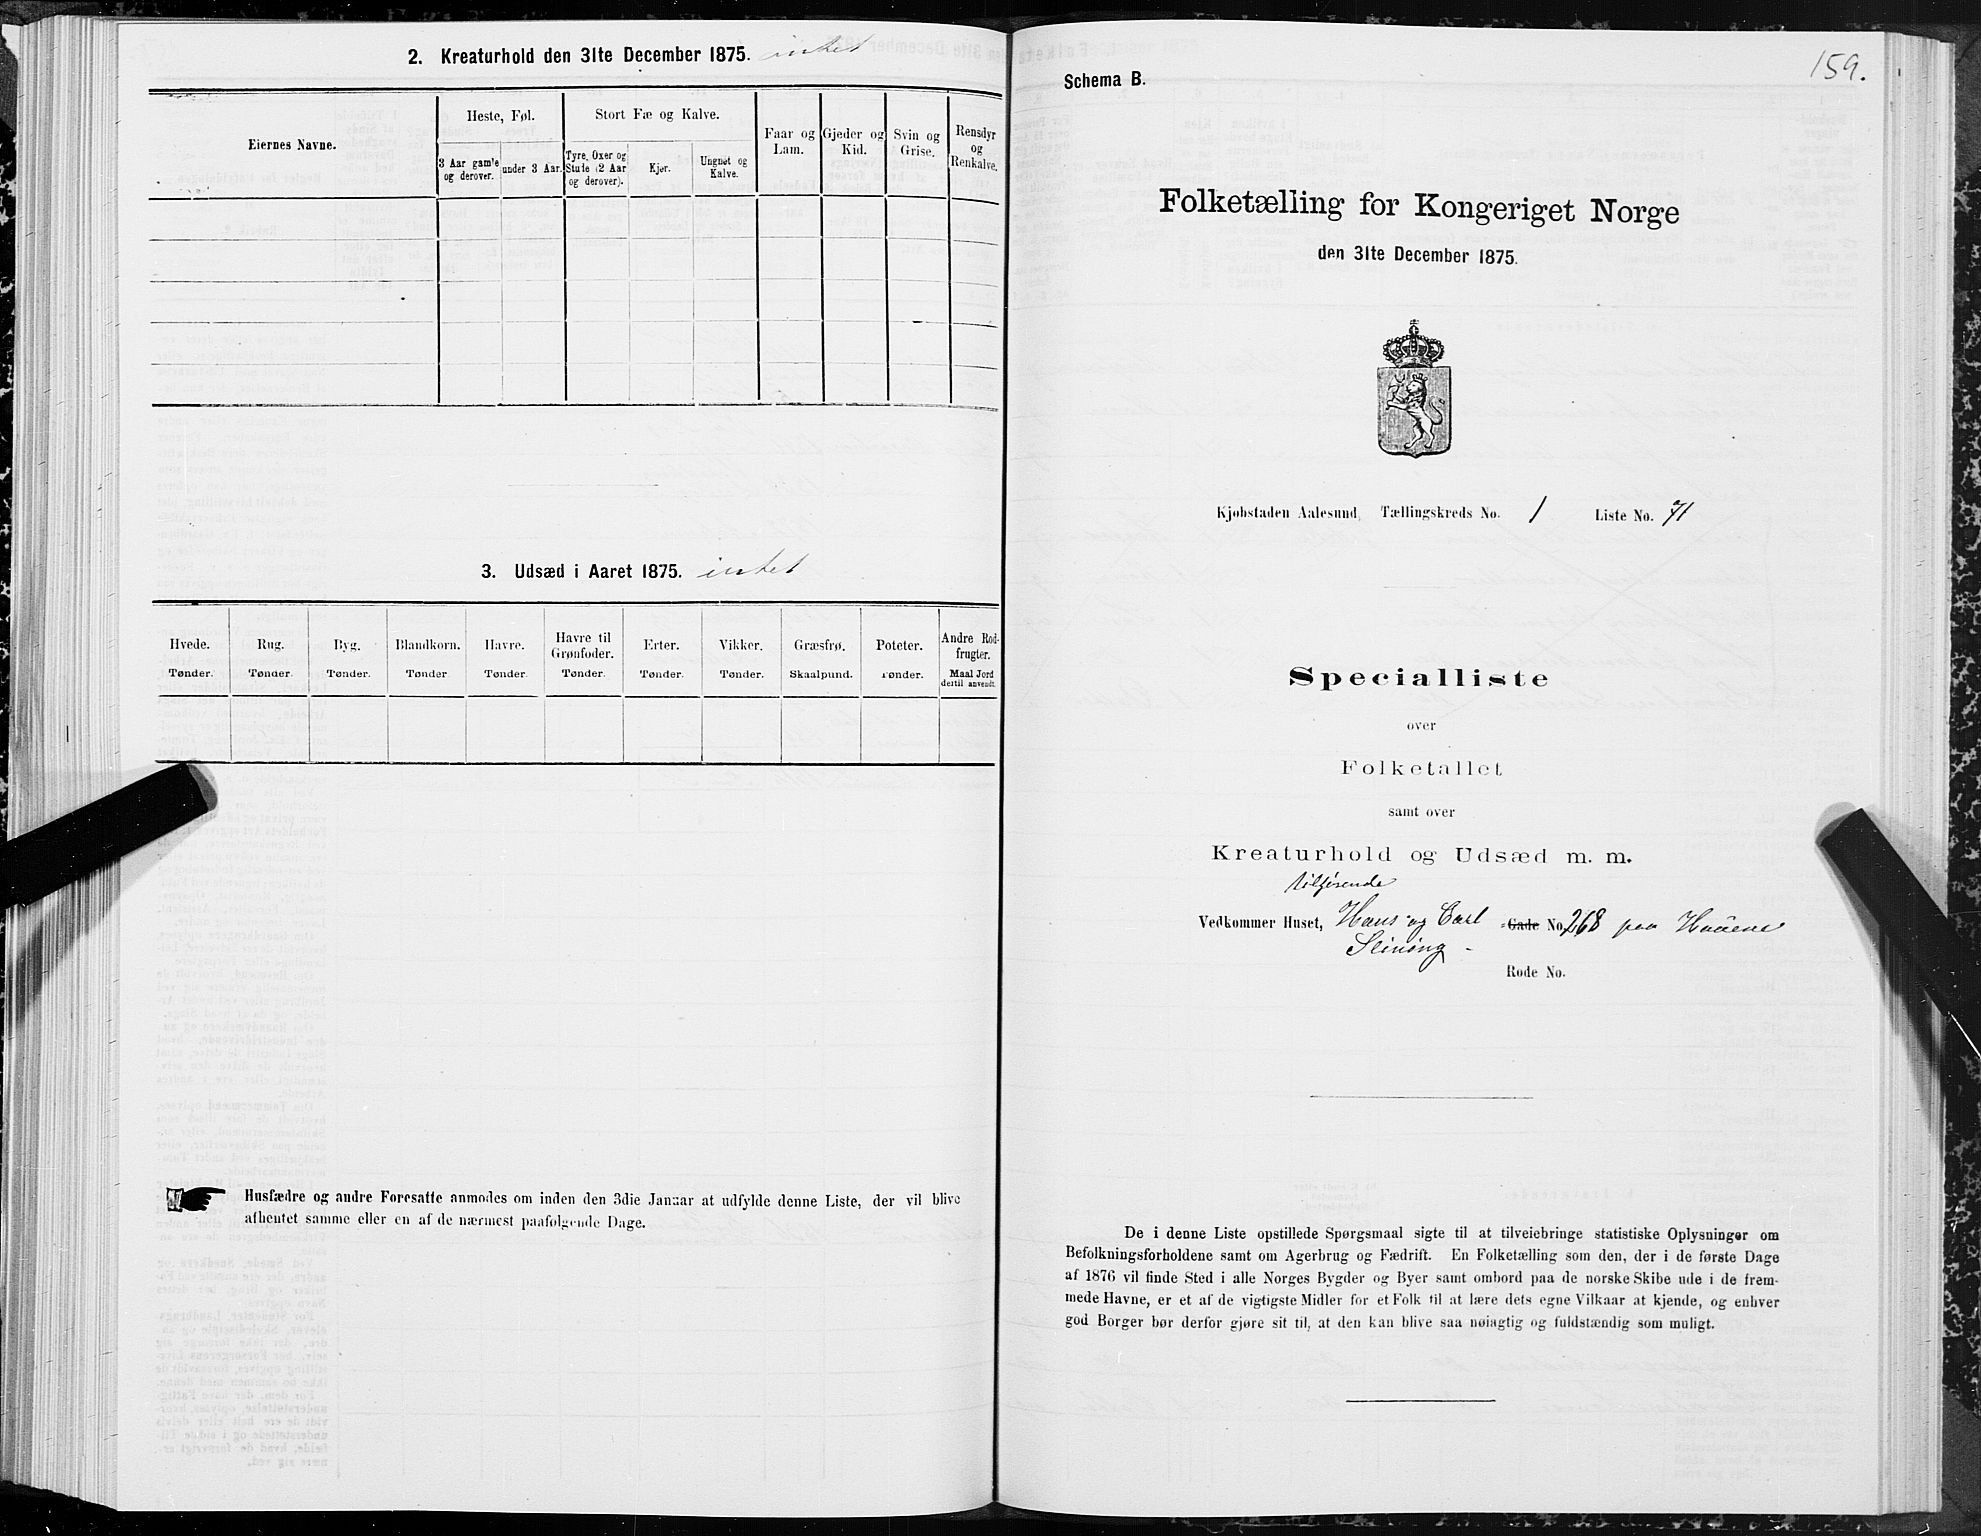 2. Kreaturhold den 31te December 1875. intet
Eiernes Navne.
Heste, Føl.
3 Aar gamle og derover.
under 3 Aar.
Stort Fæ og Kalve.
Tyre, Oxer og Stute (2 Aar og derover).
Kjør.
Ungnøt og Kalve.
Faar og Lam.
Gjeder og Kid.
Svin og Grise.
Rensdyr og Renkalve.
3. Udsæd i Aaret 1875. intet
Hvede. Rug. Byg. Blandkorn. Havre. Havre til Grønfoder. Erter. Vikker. Græsfrø. Poteter. Andre Rodfrugter.
Tønder. Tønder. Tønder. Tønder Tønder. Tønder. Tønder. Tønder. Skaalpund. Tønder. Maal Jord dertil anvendt.
Husfædre og andre Foresatte anmodes om inden den 3die Januar at udfylde denne Liste, der vil blive
afhentet samme eller en af de nærmest paafølgende Dage.
159.
Schema B.
Folketælling for Kongeriget Norge
den 31te December 1875.
Kjøbstaden Aalesund, Tællingskreds No. 1 Liste No. 71
Specialliste
over
Folketallet
samt over
Kreaturhold og Udsæd m. m.
tilhørende
Vedkommer Huset, Hans og Carl Gade No. 268 paa
Rode No.
De i denne Liste opstillede Spørgsmaal sigte til at tilveiebringe statistiske Oplysninger om
Befolkningsforholdene samt om Agerbrug og Fædrift. En Folketælling som den, der i de første Dage
af 1876 vil finde Sted i alle Norges Bygder og Byer samt ombord paa de norske Skibe ude i de frem-
mede Havne, er et af de vigtigste Midler for et Folk til at lære dets egne Vilkaar at kjende, og enhver
god Borger bør derfor gjøre sit til, at den kan blive saa nøiagtig og fuldstændig som muligt.